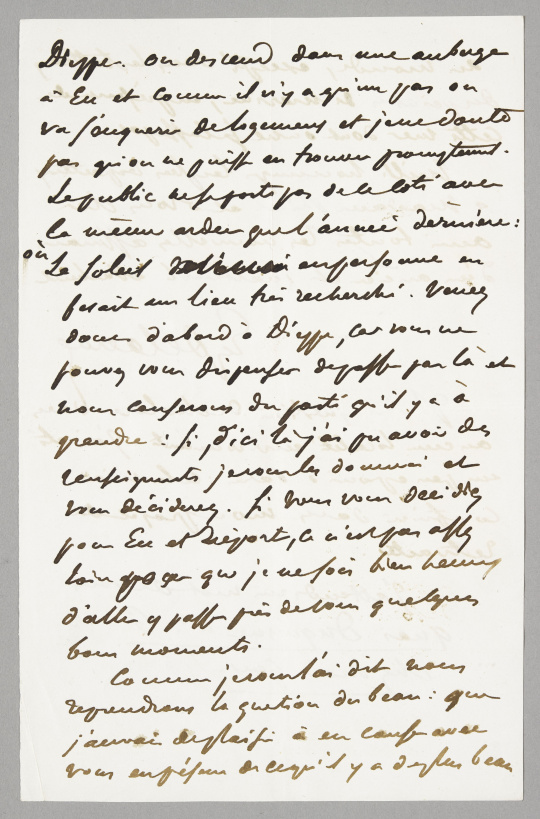 Dieppe. on descend dans une auberge
à Eu et comme il n'y a qu'un pas on
va s'enquérir de logement et je ne doute
pas qu'on ne puisse en trouver promptement.
Le public ne se porte pas de ce côté avec
la même ardeur que l'année dernière :
où
Le Soleil en personne en
ferait un lieu très recherché. Venez
donc d'abord à Dieppe, car vous ne
pouvez vous dispenser de passer par là et
nous causerons du parti qu'il y a à
prendre : si, d'ici là j'ai pu avoir des
renseignements je vous les donnerai et
vous déciderez. Si vous vous décidez
pour Eu et Tréport, ce n'est pas assez
loin pour que je ne sois bien heureux
d'aller y passer près de vous quelques
bons moments.
Comme je vous l'ai dit nous
reprendrons la question du beau : que
j'aurais de plaisir à en causer avec
vous en présence de ce qu'il y a de plus beau